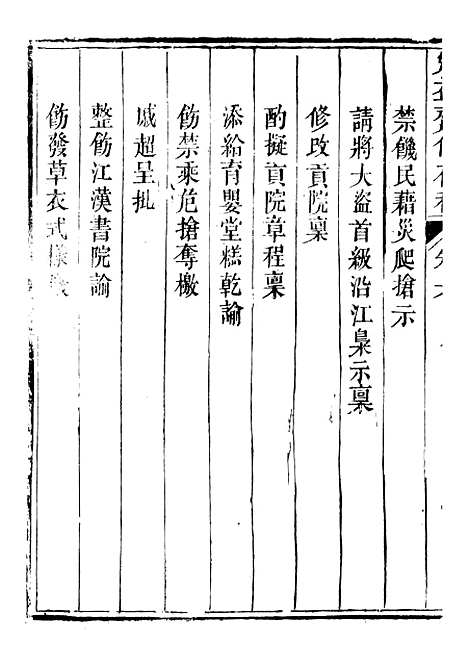 禁饑民藉災爬搶示
請將大盜首級沿江梟示稟
修改貢院稟
酌擬貢院章程稟
添給育嬰堂糕乾諭
飭禁乘危搶奪檄
戚超呈批
整飭江漢書院諭
飭發草衣式樣